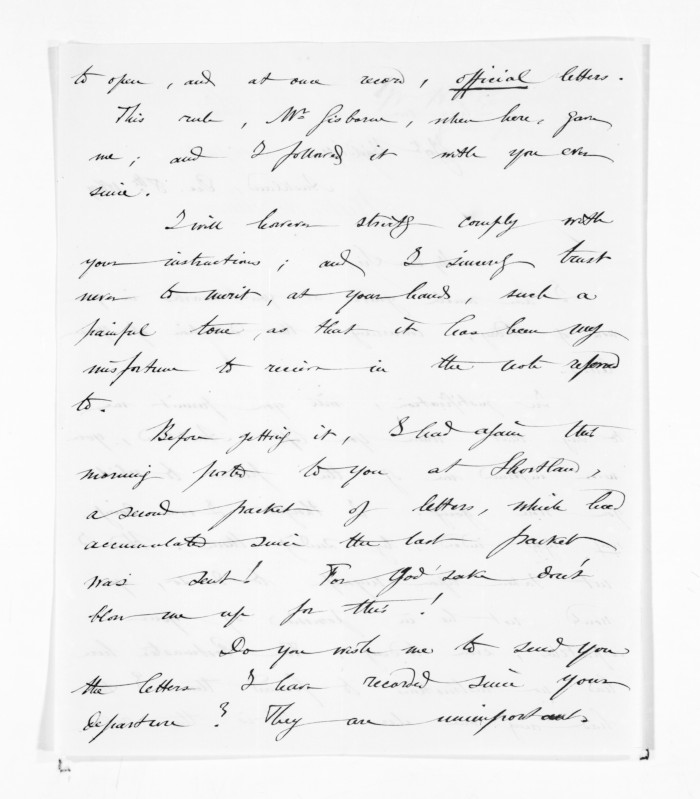 to open, and at once record, official letters.
This rule, Mr Gisborne, when here, gave
me; and I followed it with you ever
since.
I will however strictly comply with
your instructions; and I sincerely trust
never to merit, at your hands, such a
painful tone, as that it has been my
misfortune to receive in the note referred
to.
Before getting it, I had again this
morning posted to you at Shortland,
a second packet of letters, which had
accumulated since the last packet
was sent! For God' sake don't
blow me up for this!
Do you wish me to send you
the letters I have recorded since your
departure? They are unimportant